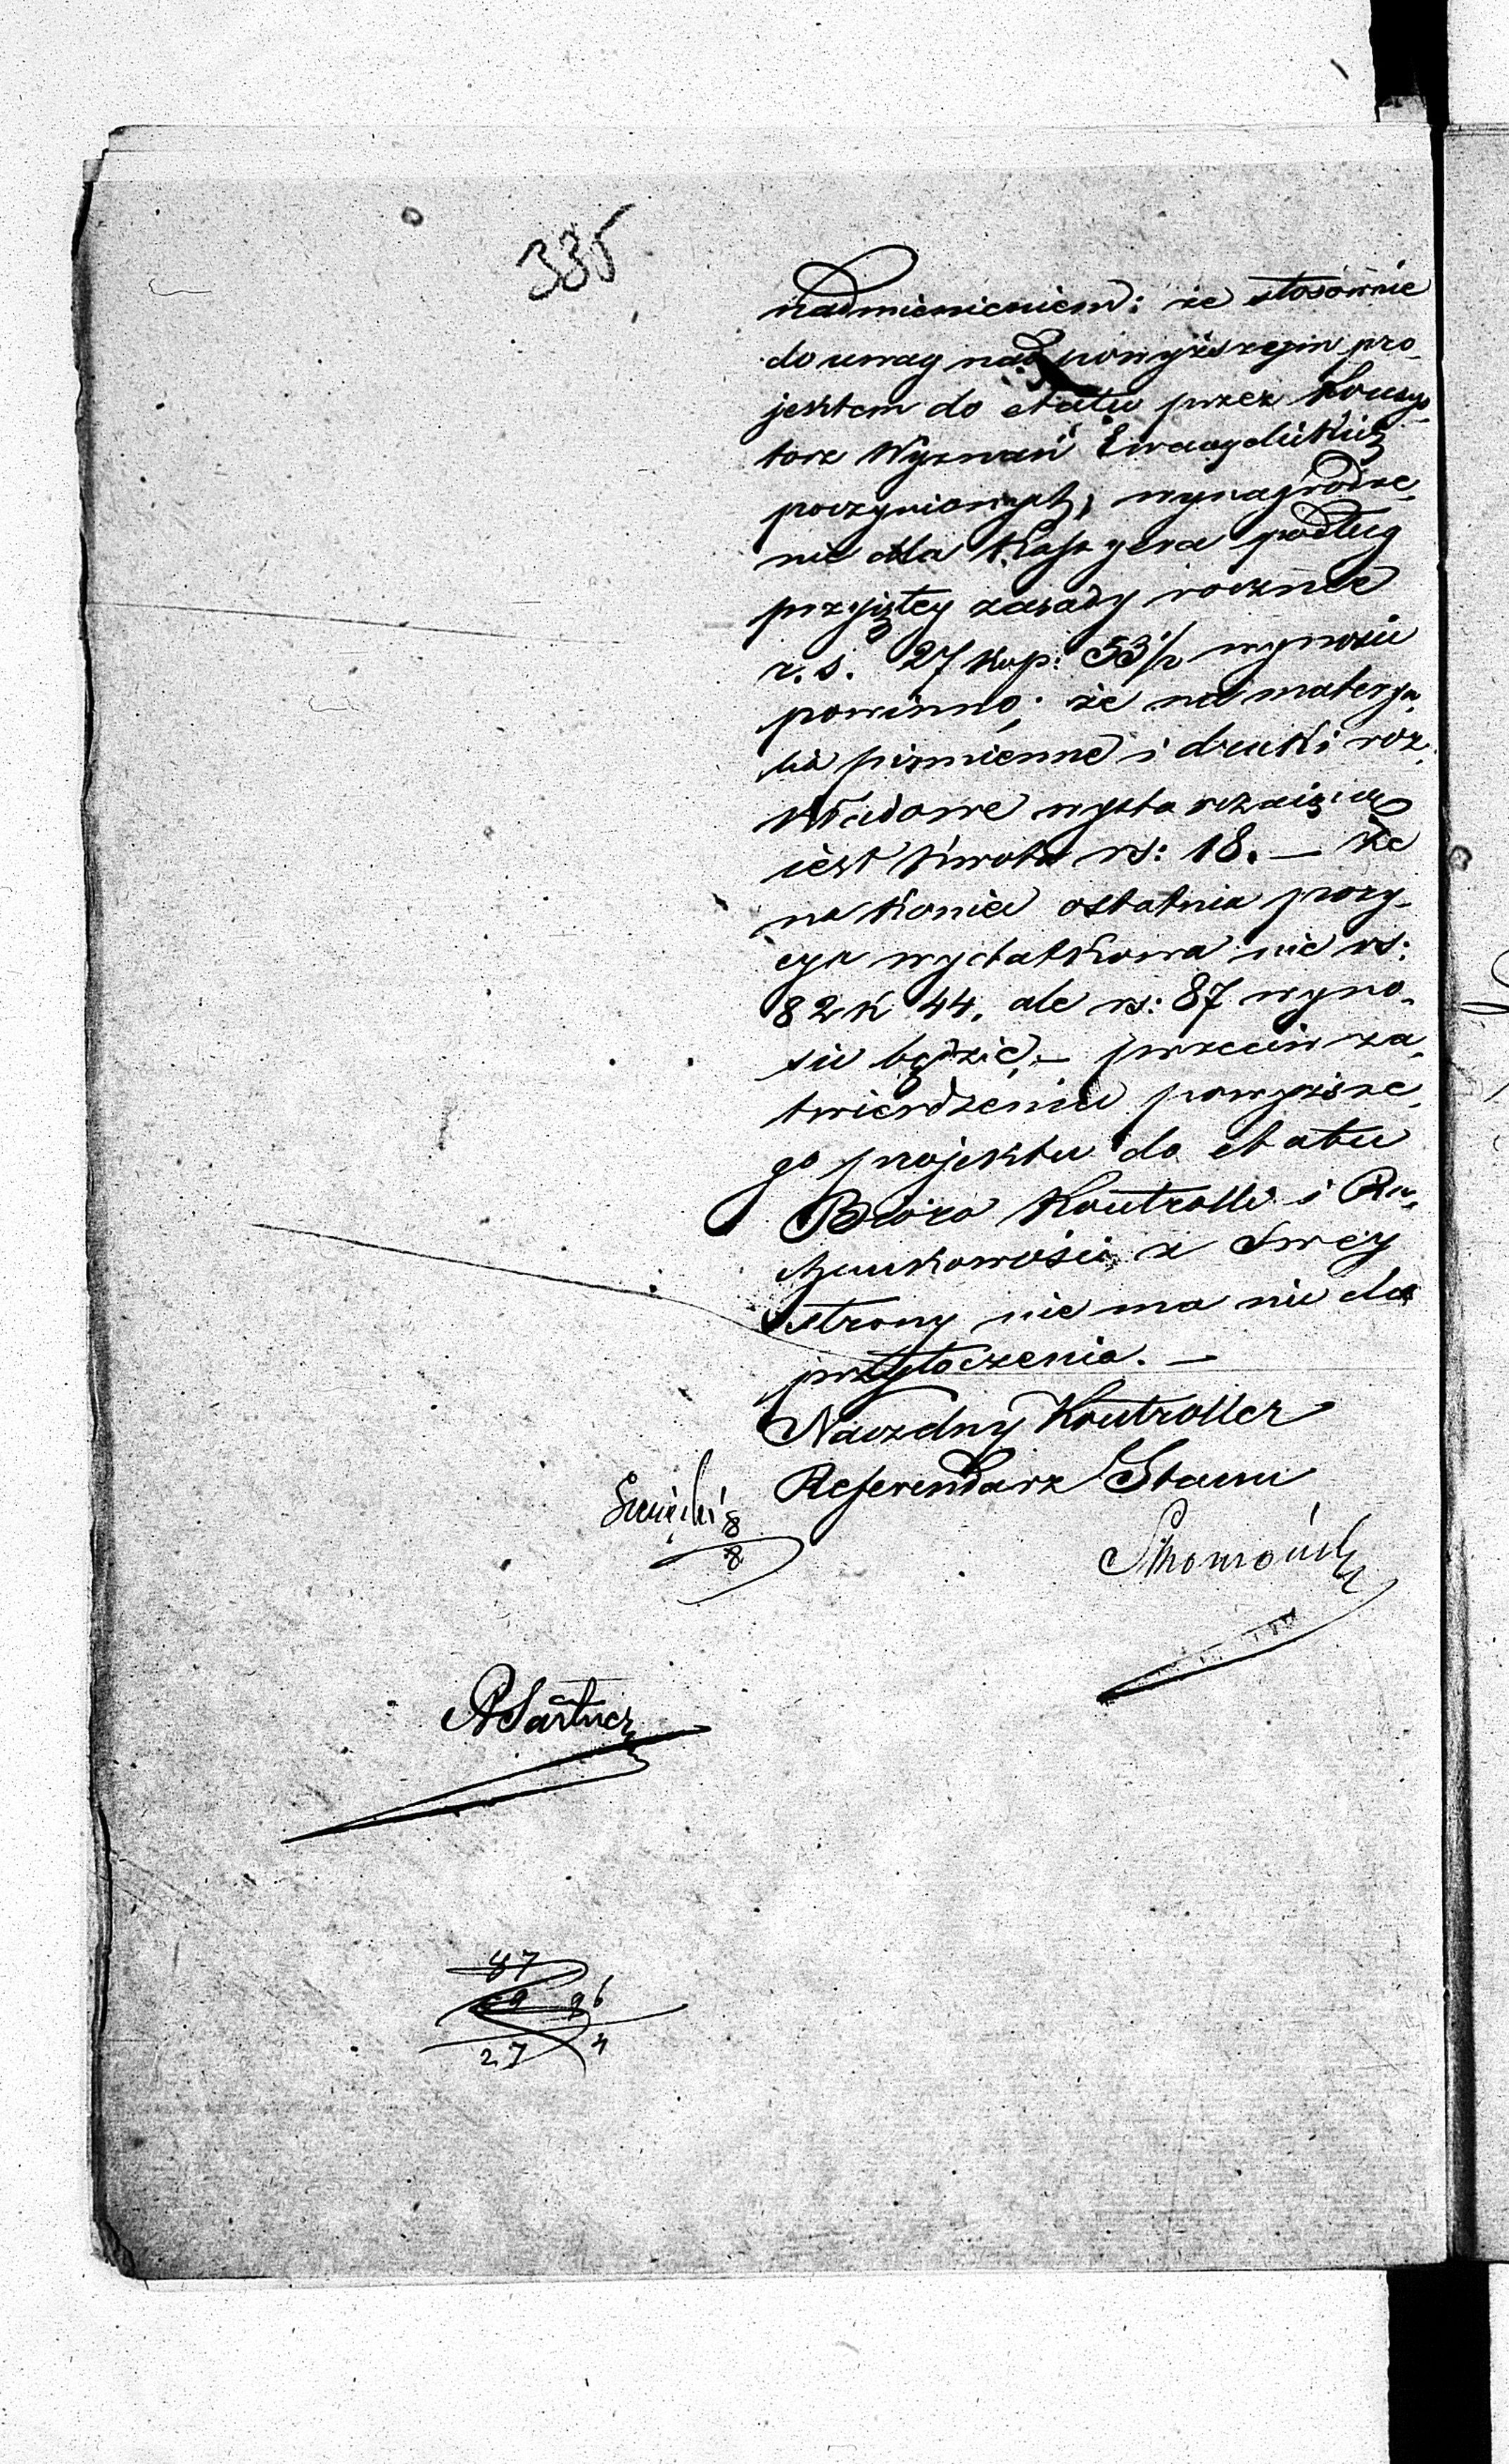 335
nadmienieniem: że stosownie
do uwag nad powyższym pro-
jektem do etatu przez Konsys-
torz Wyznań Ewangelickich
poczynionych, wynagrodze-
nie dla Kassyera podług
przyjętey zasady rocznie
r. s. 27 kop: 53½ wynosić
powinno; że na materya-
ła piśmienne i druki roz-
kładowe wystarczaiącą
iest kwota rs: 18. — że
na koniec ostatnia pozy-
cya wydatkowa nie rs:
82 k 44. ale rs: 87 wyno-
sić będzie, — przeciw za-
twierdzeniu powyższe-
go projektu do etatu
Bióro Kontrolli i Ra-
chunkowości z swey
strony nie ma nic do
przytoczenia. —
Naczelny Kontroller
Referendarz Stanu
8
8
87
96
27 4